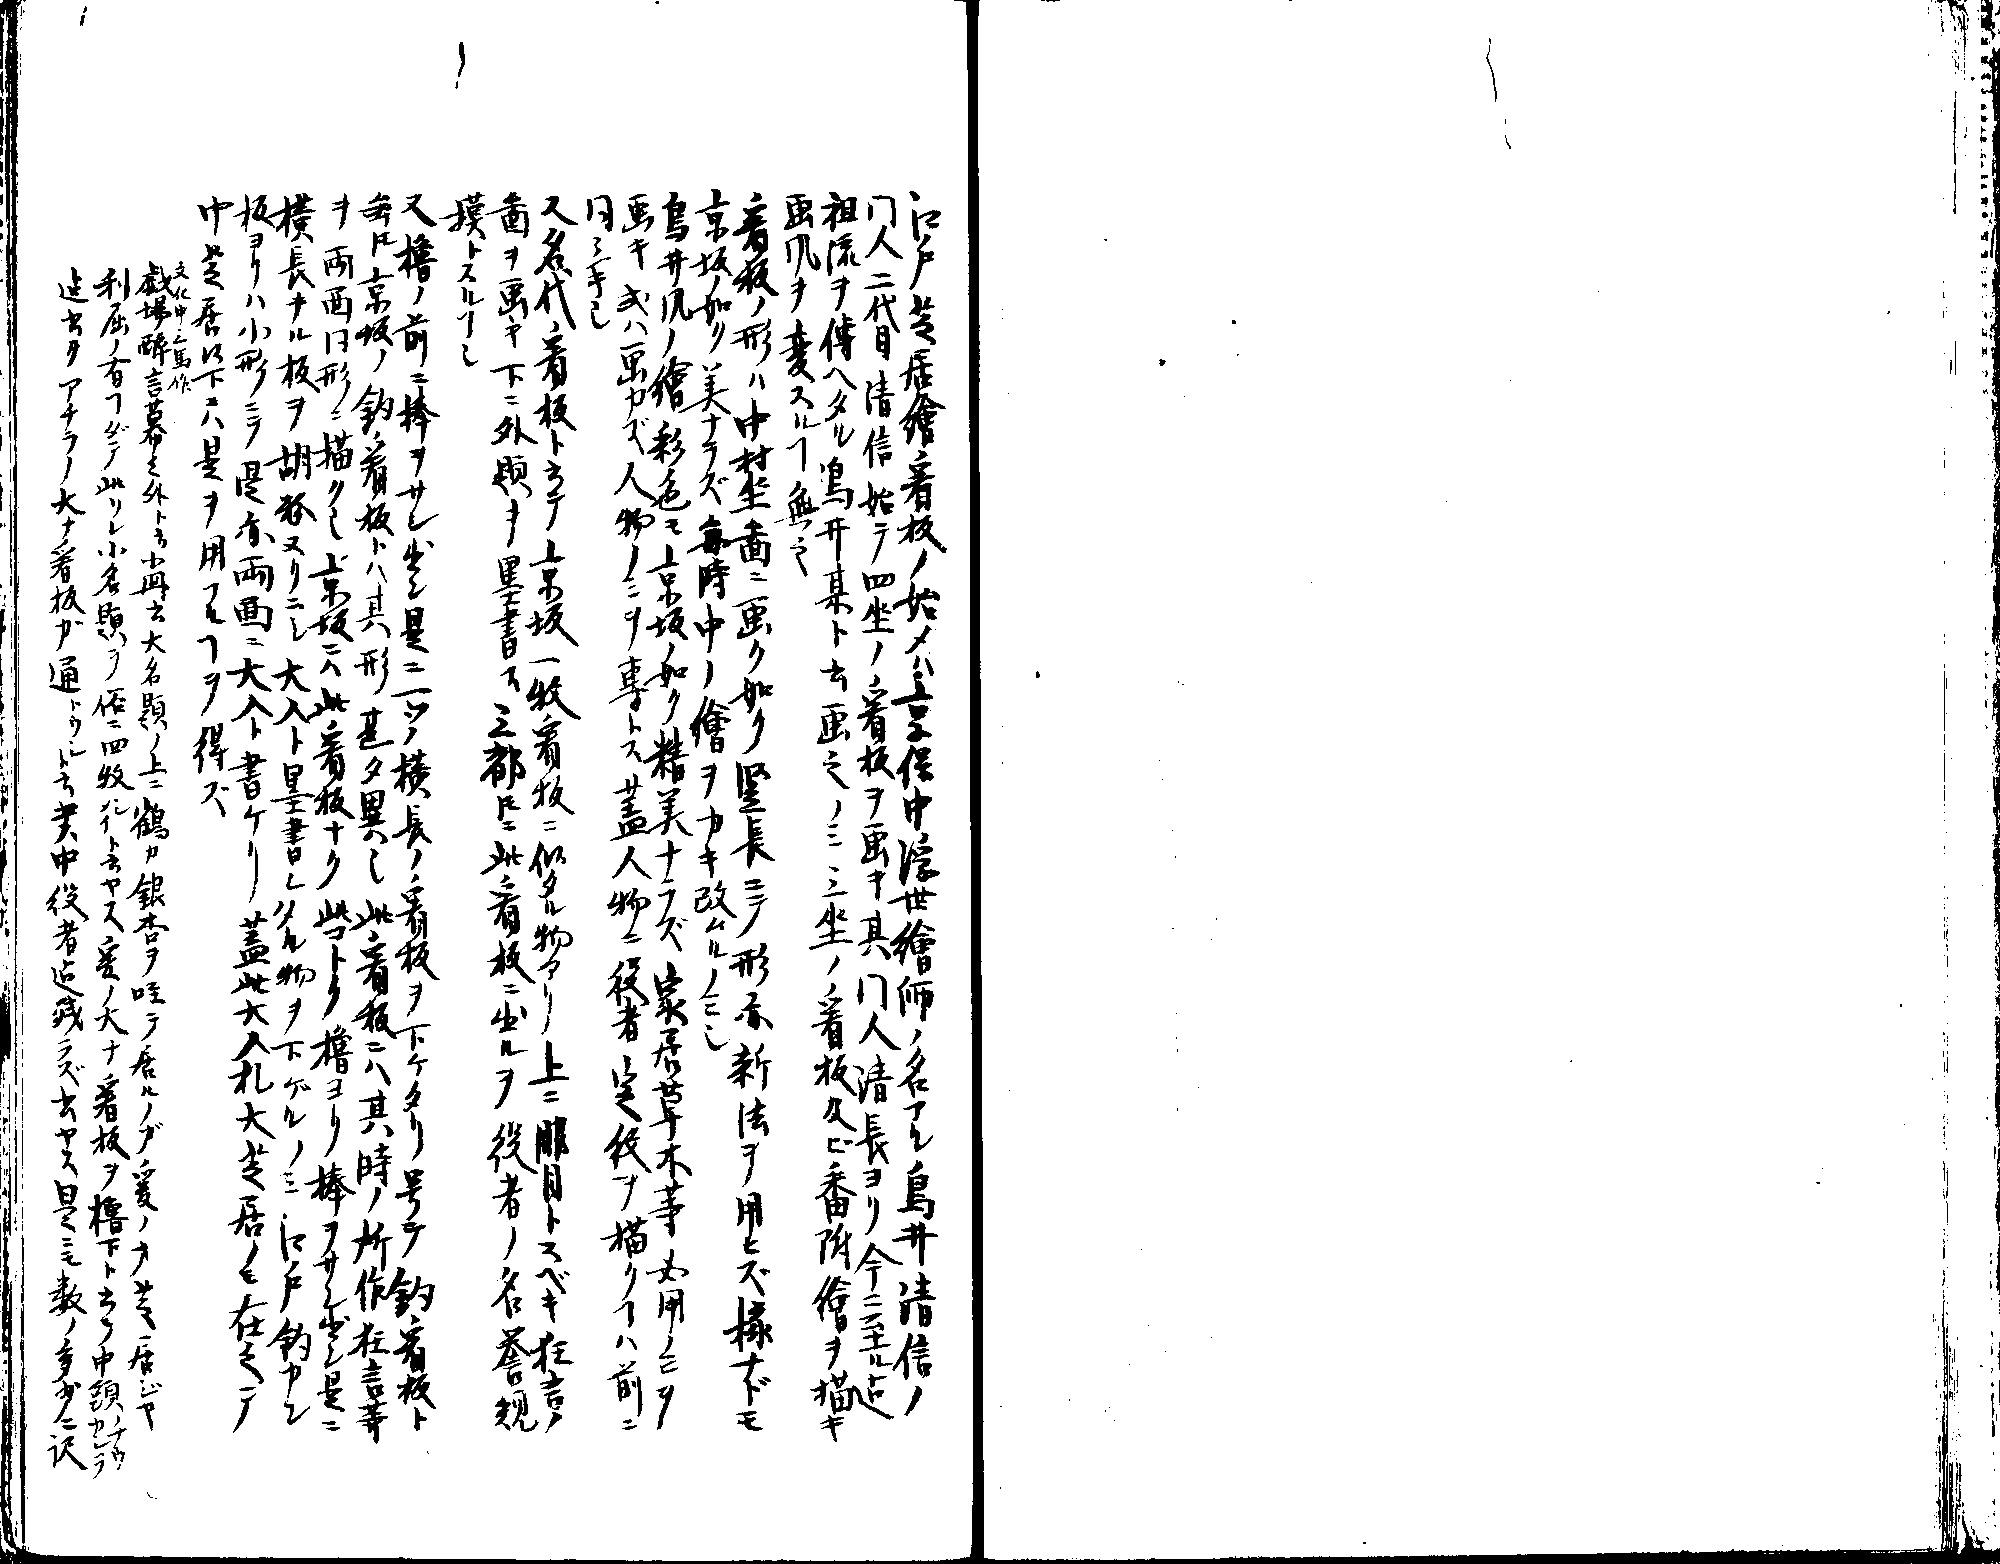 江戸芝居繪看板ノ始メハ享保中浮世繪師ノ名アル鳥井清信ノ
門人二代目清信始テ四坐ノ看板ヲ画キ其門人清長ヨリ今ニ至ル迠
祖流ヲ傳ヘタル鳥井某ト云画之ノミ三坐ノ看板及ビ番附繪ヲ描キ
画風ヲ変スルヿ無之
看板ノ形ハ中村坐啚ニ画ク如ク竪長ニテ形亦新法ヲ用ヒズ椽ナドモ
京坂ノ如ク美ナラズ毎時中ノ繪ヲカキ改ムルノミ也
鳥井風ノ繪彩色モ京坂ノ如ク精美ナラズ家居草木等必用ノミヲ
画キ或ハ画カズ人物ノミヲ専トス蓋人物ニ役者定紋ヲ描クヿハ前ニ
同シキ也
又名代看板ト云テ京坂一枚看板ニ似タル物アリ上ニ眼目トスベキ狂言ノ
啚ヲ画キ下ニ外題ヲ墨書ス三都トモニ此看板ニ出ルヲ役者ノ名誉規
摸トスルヿ也
又櫓ノ前ニ棒ヲサシ出シ是ニ一ツノ横長ノ看板ヲ下ケタリ号テ釣看板ト
毎トモ京坂ノ釣看板トハ其形甚タ異也此看板ニハ其時ノ所作狂言等
ヲ両面同形ニ描ク也京坂ニハ此看板ナク此トク櫓ヨリ棒ヲサシ出シ是ニ
横長ナル板ヲ胡粉ヌリニシ大入ト墨書シタル物ヲ下ゲルノミ江戸釣カン
板ヨリハ小形ニテ是亦両面ニ大入ト書ケリ蓋此大入札大芝居ノモ在之テ
中芝居以下ニハ是ヲ用フルヿヲ得ズ
文化中三馬作
戯場酔言幕之外ト云小冊云大名題ノ上ニ鶴カ銀杏ヲ咥テ居ルノガ爰ノ芝居ジヤ
利屈ノ有ヿダテ此リレ小名題ヲ俗ニ四枚ト云ヤス爰ノ大ナ看板ヲ櫓下ト云テ中頭ノ
迠云タアチラノ大ナ看板ガ通トウルト云奥中役者迠残ラズ云ヤス是ニモ数ノ多少ニ訳